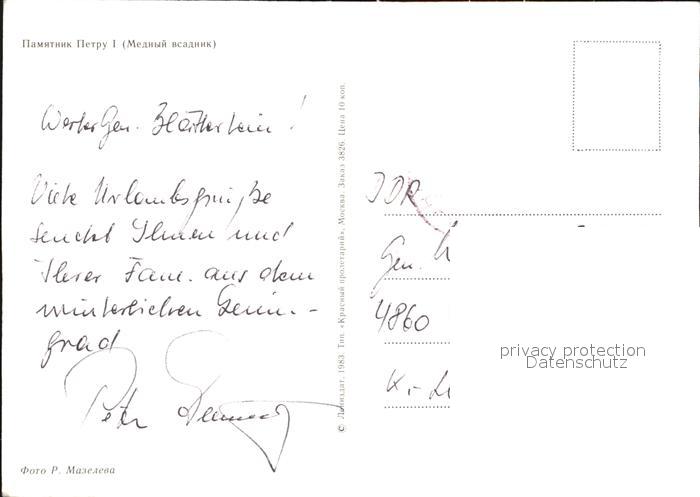 Памятник Петру I (Медный всадник)
Werter Gen. Blätterlein!
Viele Urlaubsgrüße
sendet Ihnen und
Ihrer Fam. aus dem
winterlichen Lenin-
grad
Peter
Фото Р. Мазелева
© Лениздат, 1983. Тип. «Красный пролетарий», Москва. Заказ 3826. Цена 10 коп.
DDR
Gen.
4860
privacy protection
Datenschutz
K.-L